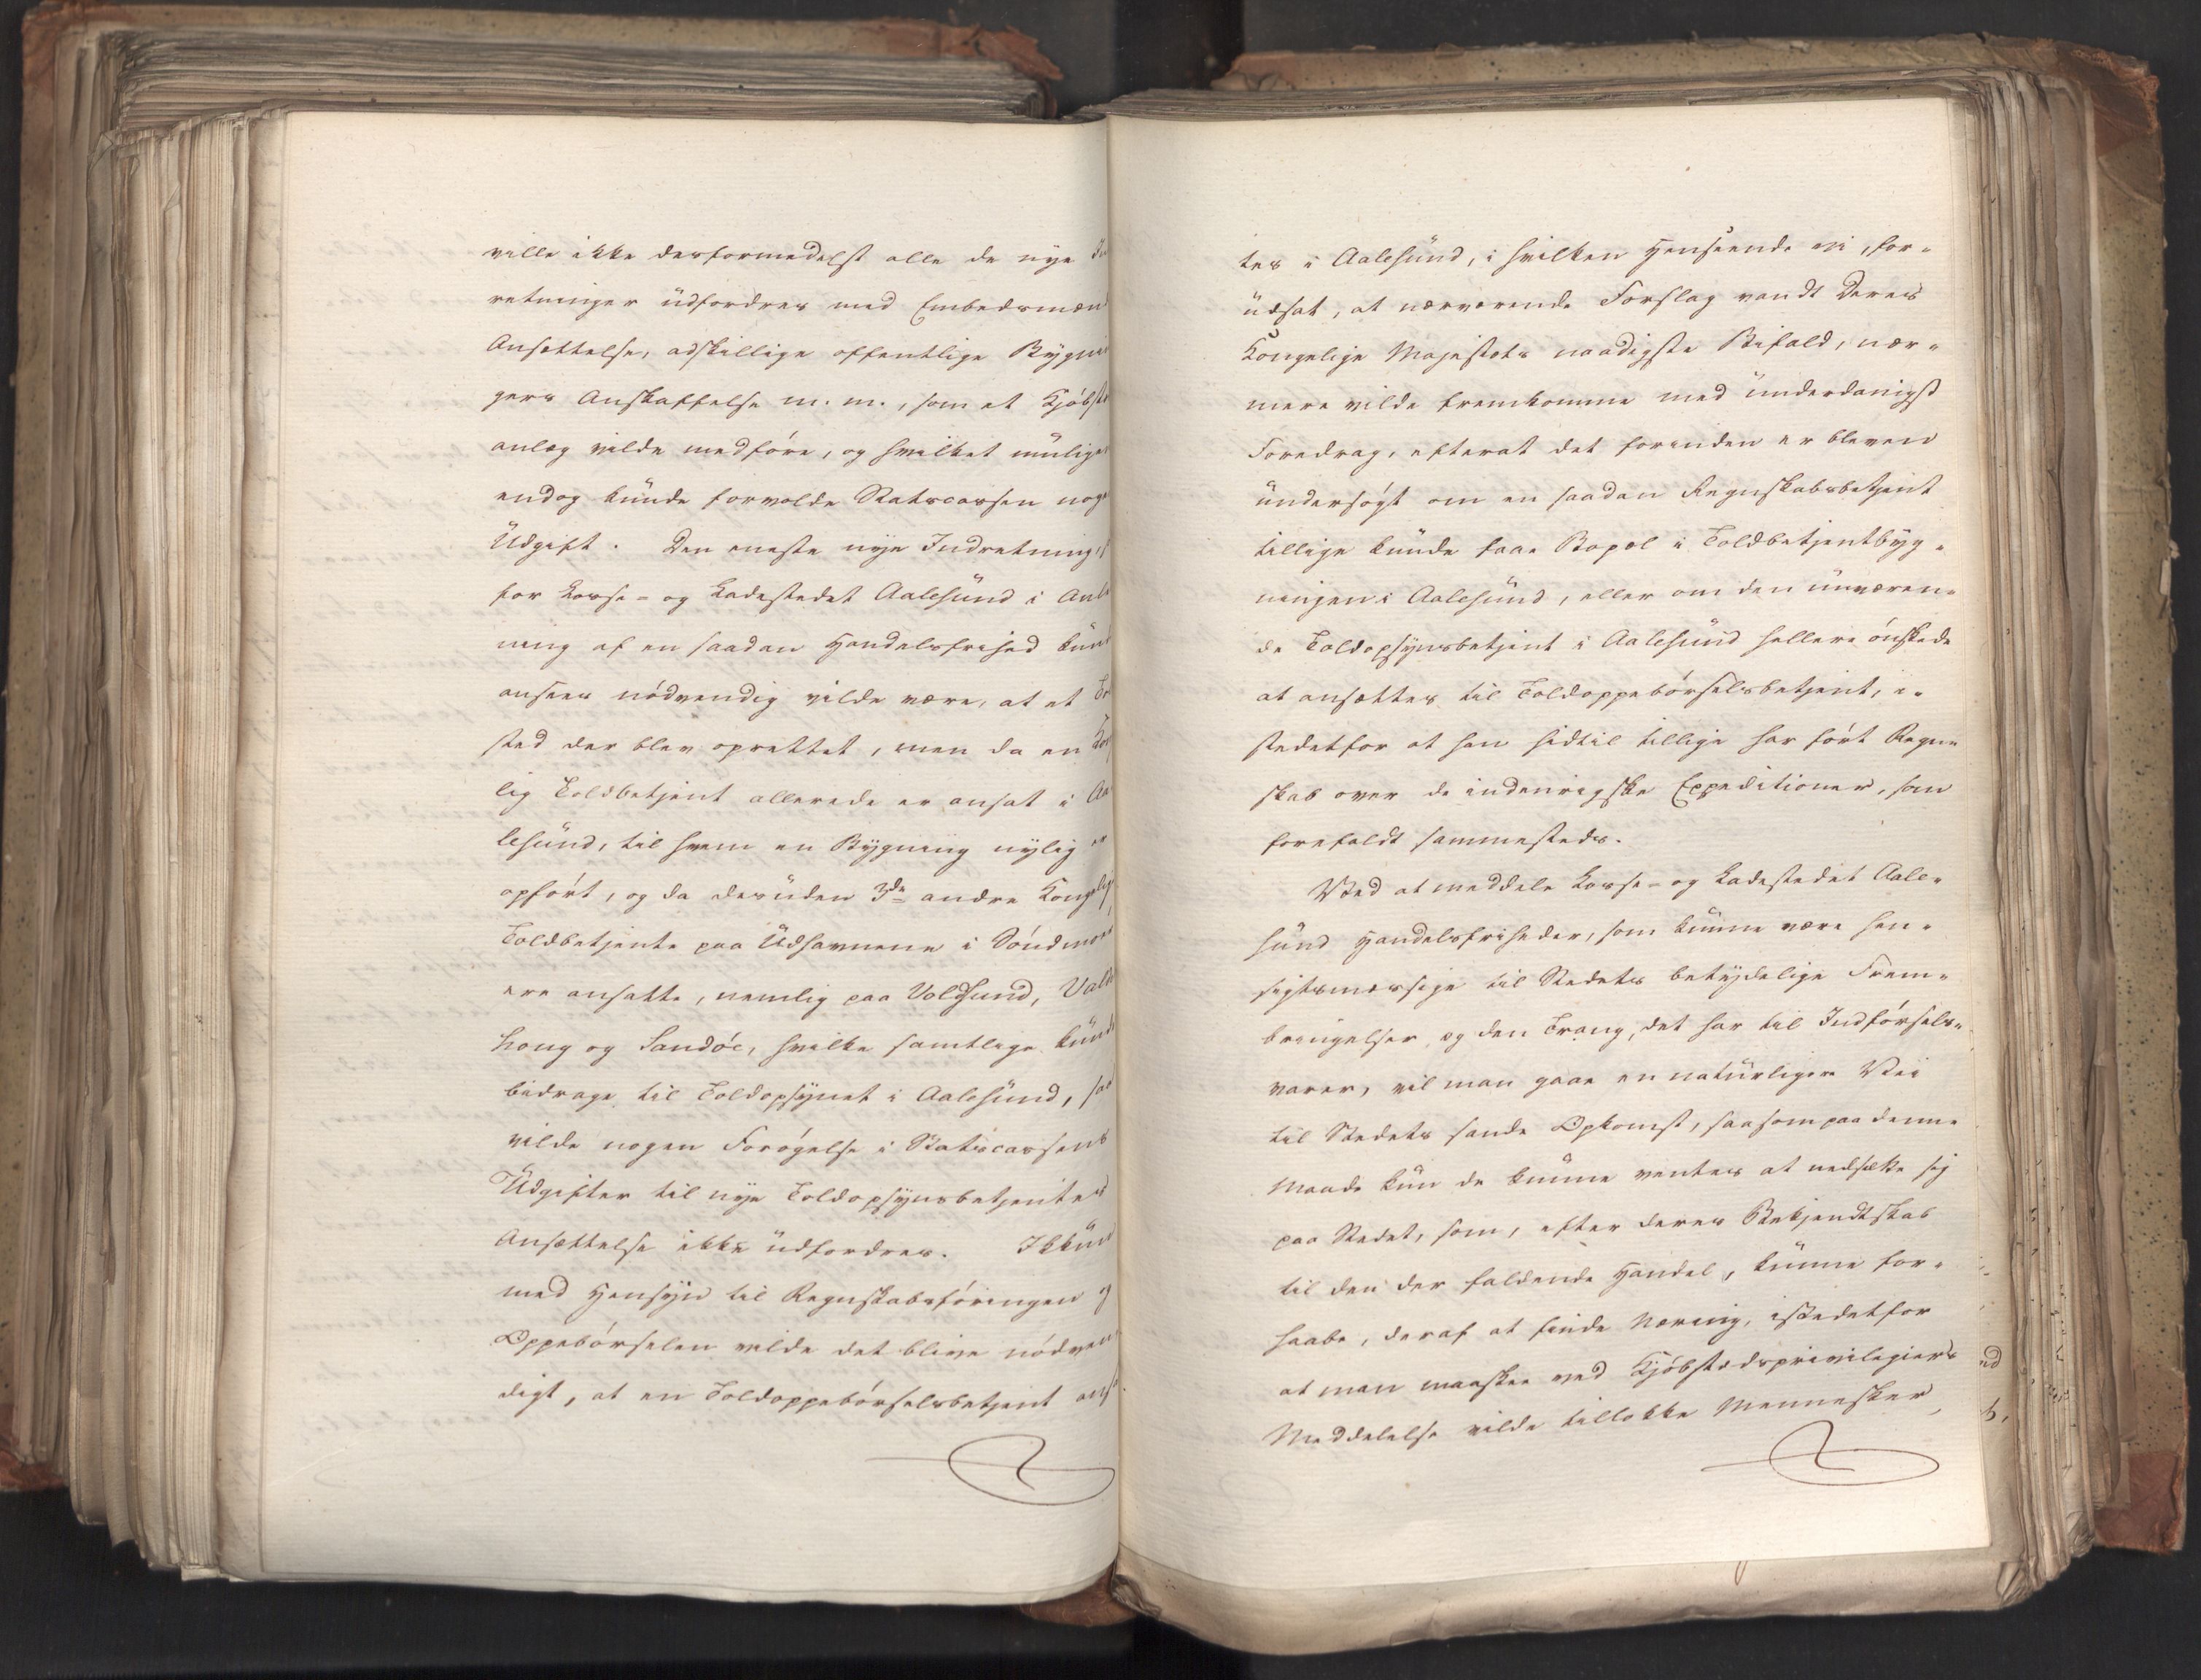 ville ikke derformedelst alle de nye In
retninger udfordres med Embedsmæn
Ansættelse, adskillige offentlige Bygni
gers Anskaffelse m. m., som et Kjøbst
anlæg vilde medføre, og hvilket mulige
endog kunde forvolde Statscassen noge
Udgift. Den eneste nye Indretning, s
for Losse- og Ladestedet Aalesund i Anle
ning af en saadan Handelsfrihed kund
ansees nødvendig vilde være, at et Tol
sted der blev oprettet, men da en Kon
lig Toldbetjent allerede er ansat i Aa
lesund, til hvem en Bygning nylig er
opført, og da desuden 3de andre Kongelig
Toldbetjente paa Udhavnene i Søndmør
ere ansatte, nemlig paa Voldsund, Vald
houg og Sandøe, hvilke samtlige kund
bidrage til Toldopsynet i Aalesund, saa
vilde nogen Forøgelse i Statscassens
Udgifter til nye Toldopsynsbetjentes
Ansættelse ikke udfordres. Ikkun
med Hensyn til Regnskabsføringen og
Oppebørselen vilde det blive nødven
digt, at en Toldoppebørselsbetjent ans
tes i Aalesund, i hvilken Henseende vi, for-
udsat, at nærværende Forslag vandt Deres
Kongelige Majestæts naadigste Bifald, nær-
mere vilde fremkomme med underdanigst
Foredrag, efterat det forinden er bleven
undersøgt om en saadan Regnskabsbetjent
tillige kunde faae Bopæl i Toldbetjentbyg-
ningen i Aalesund, eller om den nuværen-
de Toldopsynsbetjent i Aalesund hellere ønskede
at ansættes til Toldoppebørselsbetjent, i-
stedetfor at han hidtil tillige har ført Regn-
skab over de indenrigske Expeditioner, som
forefaldt sammesteds.
Ved at meddele Losse- og Ladestedet Aale-
sund Handelsfriheder, som kunne være hen-
sigtsmæssige til Stedets betydelige Frem-
bringelser og den Trang, det har til Indførsels-
varer, vil man gaae en naturligere Vei
til Stedets sande Opkomst, saasom paa denne
Maade kun de kunne ventes at nedsætte sig
paa Stedet, som, efter deres Bekjendtskab
til den der faldende Handel, kunne for-
haabe, deraf at finde Næring, istedetfor
at man maaskee ved Kjøbstædsprivilegiers
Meddelelse vilde tillokke Mennesker,